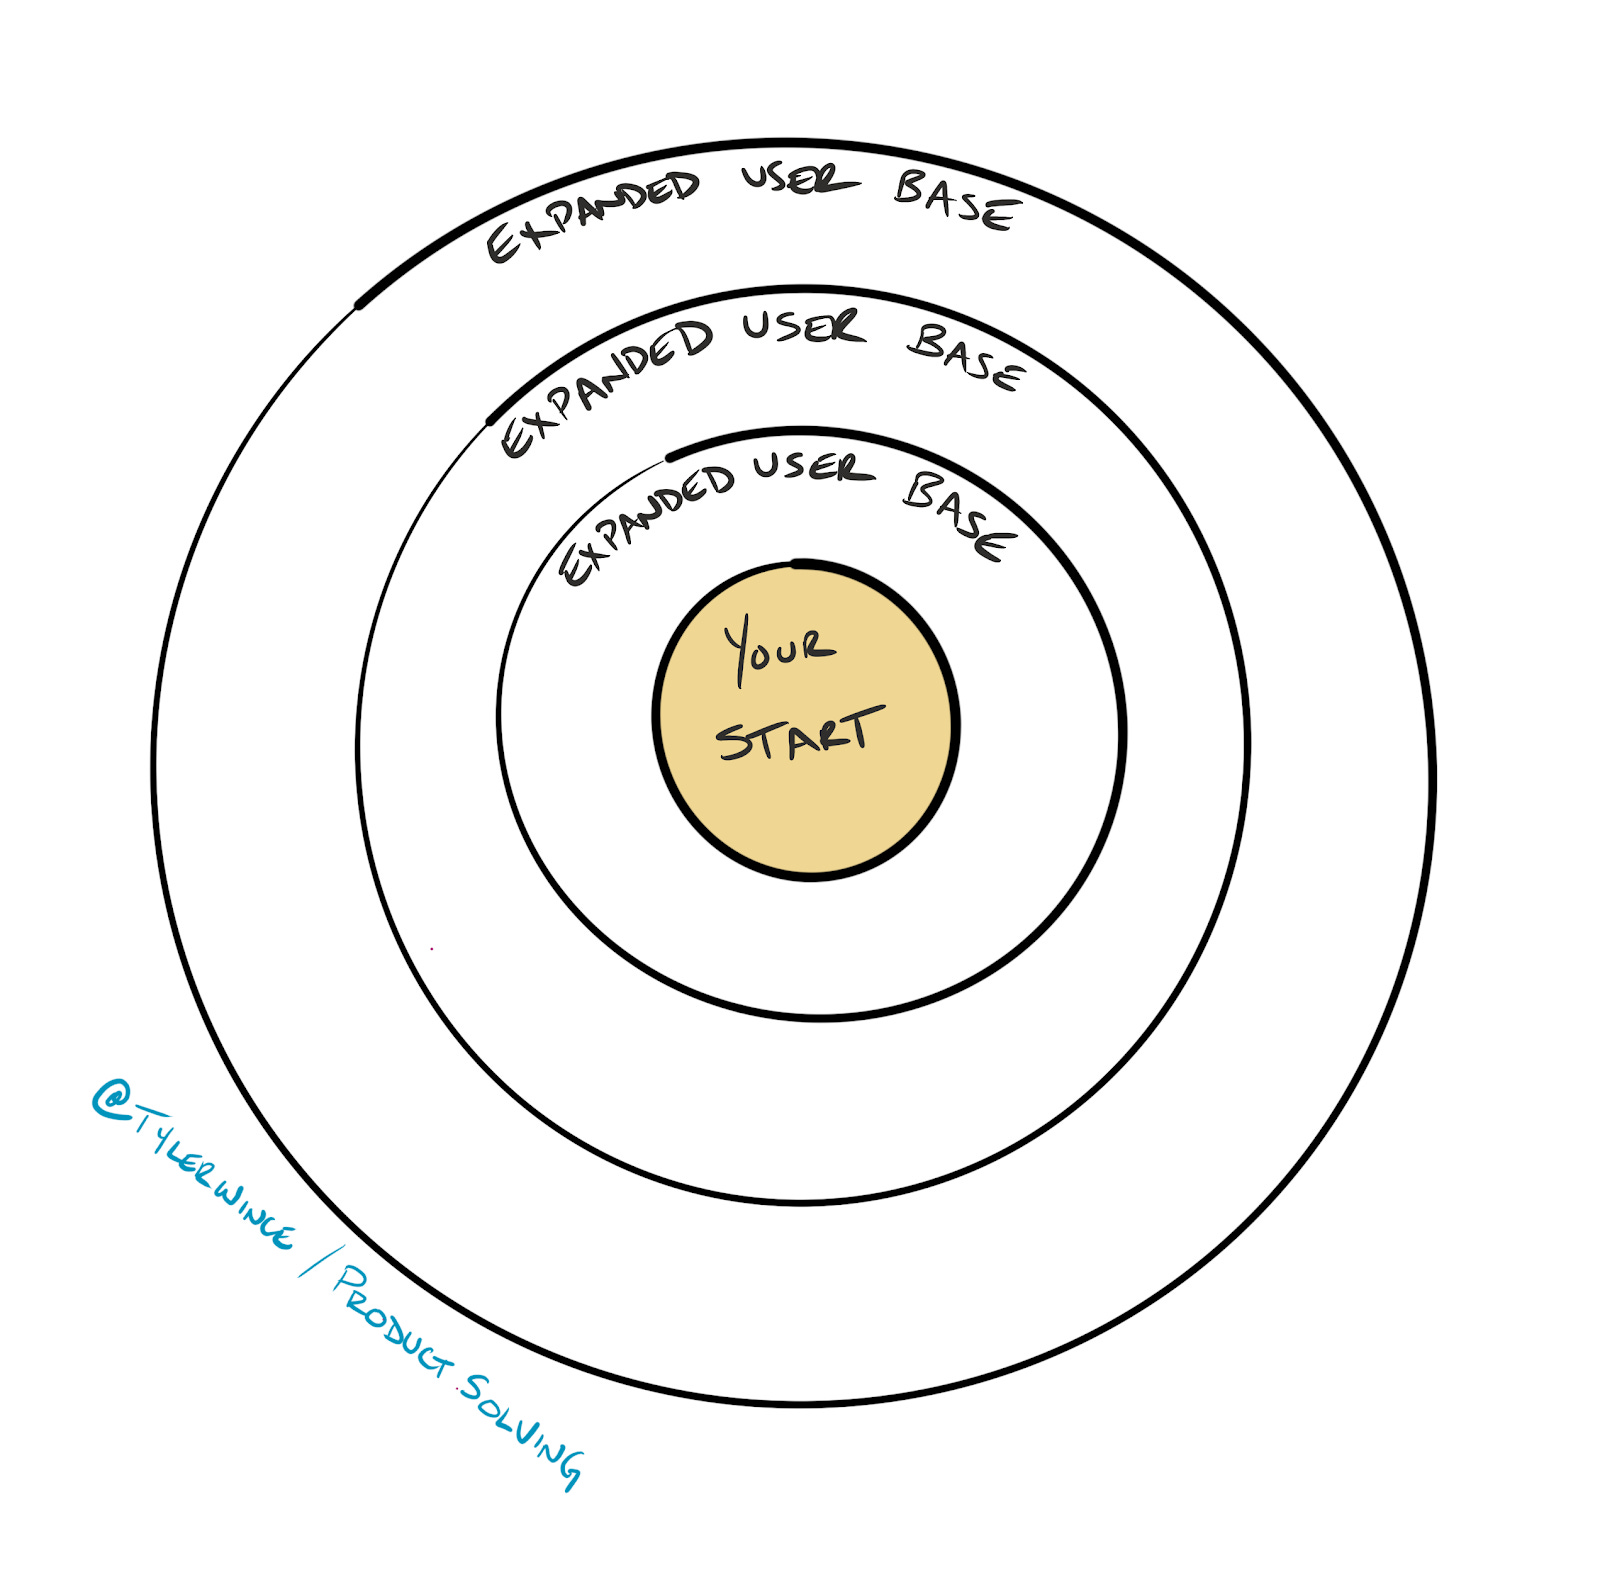 EXPANDED USER BASE
EXPANDED USER BASE
EXPANDED USER BASE
YOUR
START
@TYLERWINCE / PRODUCT SOLVING